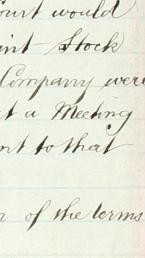 ourt would
int Stock
Company were
t a Meeting
nt to that
of the terms